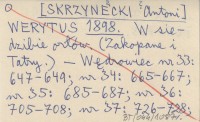 [SKRZYNECKI Antoni]
WERYTUS 1898. W sie-
dzibie orłów (Zakopane i
Tatry.) — Wędrowiec nr 33:
647-649; nr 34: 665-667;
nr 35: 685-687; nr 36:
705-708; nr 37: 726-728;